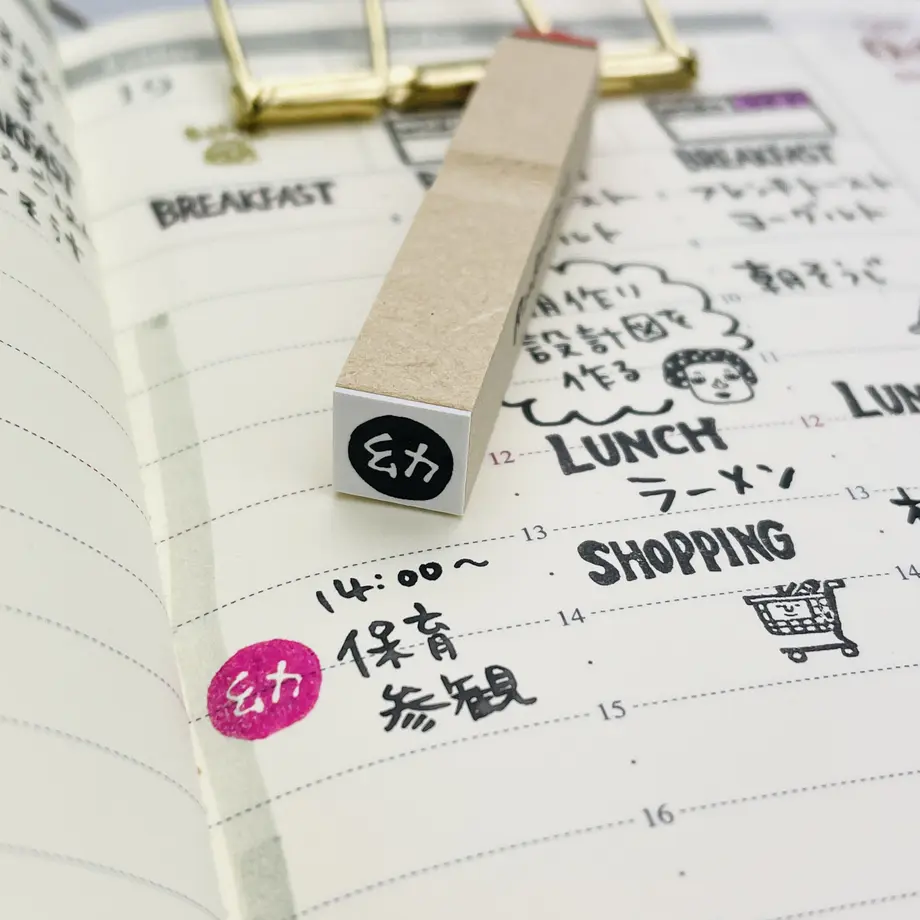 19
BREAKFAST
BREAKFAST
フレンチトースト
ヨーグルト
朝そうじ
10
設計図を
作る
11
幼
12
LUNCH
12
ラーメン
13
13
SHOPPING
14:00〜
14
14
幼
保育
参観
15
16